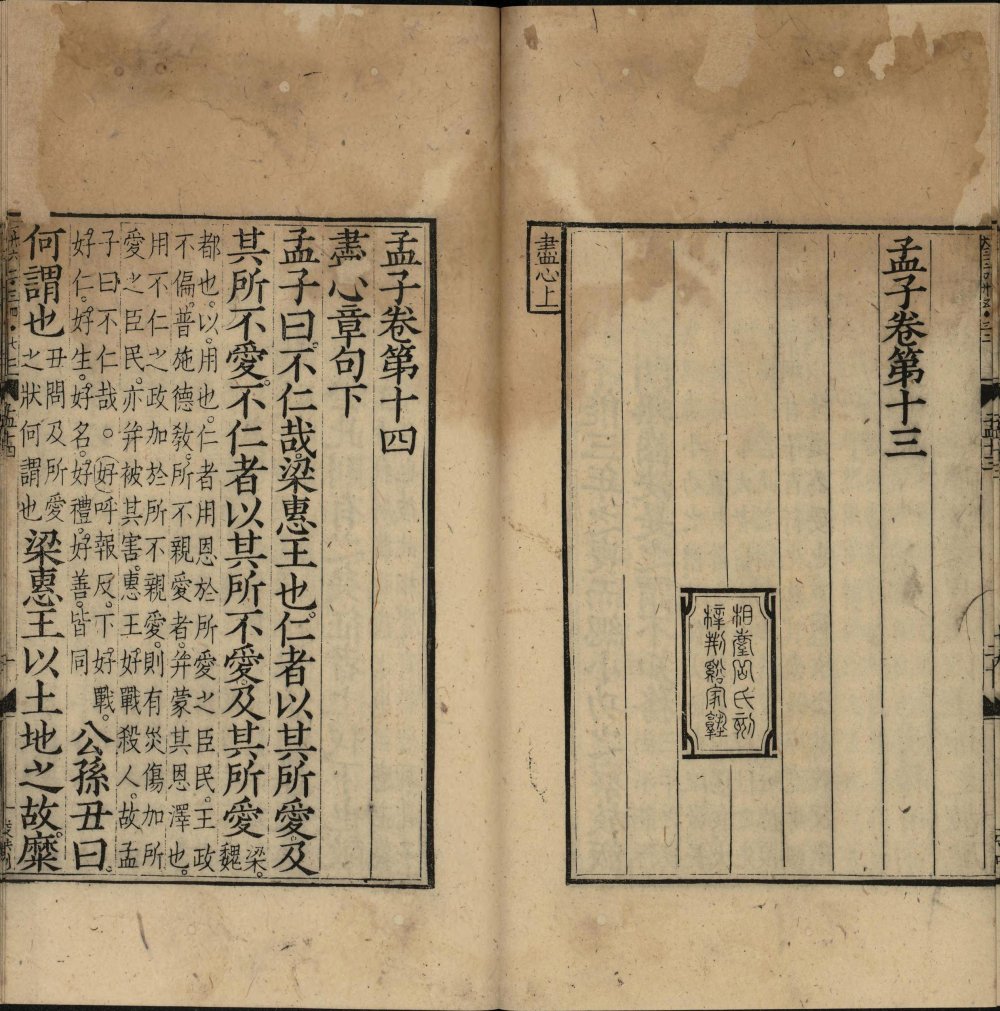 孟子卷第十三
相臺岳氏刻
梓荆谿家塾
盡心上
孟子卷第十四
盡心章句下
孟子曰。不仁哉。梁惠王也。仁者以其所愛。及
其所不愛。不仁者以其所不愛。及其所愛梁。魏
都也。以。用也。仁者用恩於所愛之臣民。王政
不偏。普施德教。所不親愛者。并蒙其恩澤也。
用不仁之政加於所不親愛。則有災傷加所
愛之臣民。亦并被其害。惠王好戰殺人。故孟
子曰不仁哉。○好呼報反。下好戰。
好仁。好生。好名。好禮。好善。皆同公孫丑曰。
何謂也丑問及所愛之狀何謂也梁惠王以土地之故。糜
孟十四